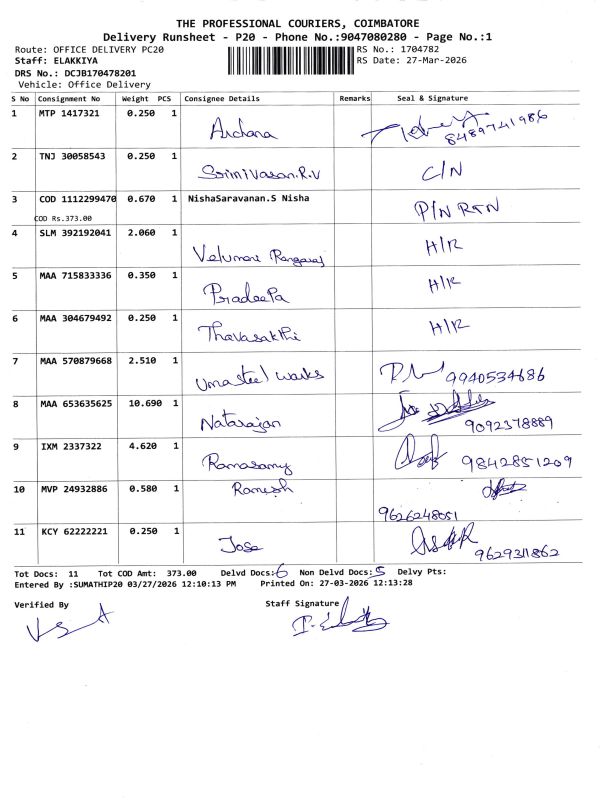 THE PROFESSIONAL COURIERS, COIMBATORE
Delivery Runsheet - P20 - Phone No.:9047080280 - Page No.:1
Route: OFFICE DELIVERY PC20 RS No.: 1704782
Staff: ELAKKIYA RS Date: 27-Mar-2026
DRS No.: DCJB170478201
Vehicle: Office Delivery
S No Consignment No Weight PCS Consignee Details Remarks Seal & Signature
1 MTP 1417321 0.250 1 Archana 8489741986
2 TNJ 30058543 0.250 1 Srinivasan.R.V C/N
3 COD 1112299470 0.670 1 NishaSaravanan.S Nisha P/N RTN
COD Rs.373.00
4 SLM 392192041 2.060 1 Velumani Rangaraj H/R
5 MAA 715833336 0.350 1 Pradeepa H/R
6 MAA 304679492 0.250 1 Thavasakthi H/R
7 MAA 570879668 2.510 1 Uma steel works 9940534686
8 MAA 653635625 10.690 1 Natarajan 9092378889
9 IXM 2337322 4.620 1 Ramasamy 9842851209
10 MVP 24932886 0.580 1 Ramesh 9626248051
11 KCY 62222221 0.250 1 Jose 9629311862
Tot Docs: 11 Tot COD Amt: 373.00 Delvd Docs: 6 Non Delvd Docs: 5 Delvy Pts:
Entered By :SUMATHIP20 03/27/2026 12:10:13 PM Printed On: 27-03-2026 12:13:28
Verified By Staff Signature